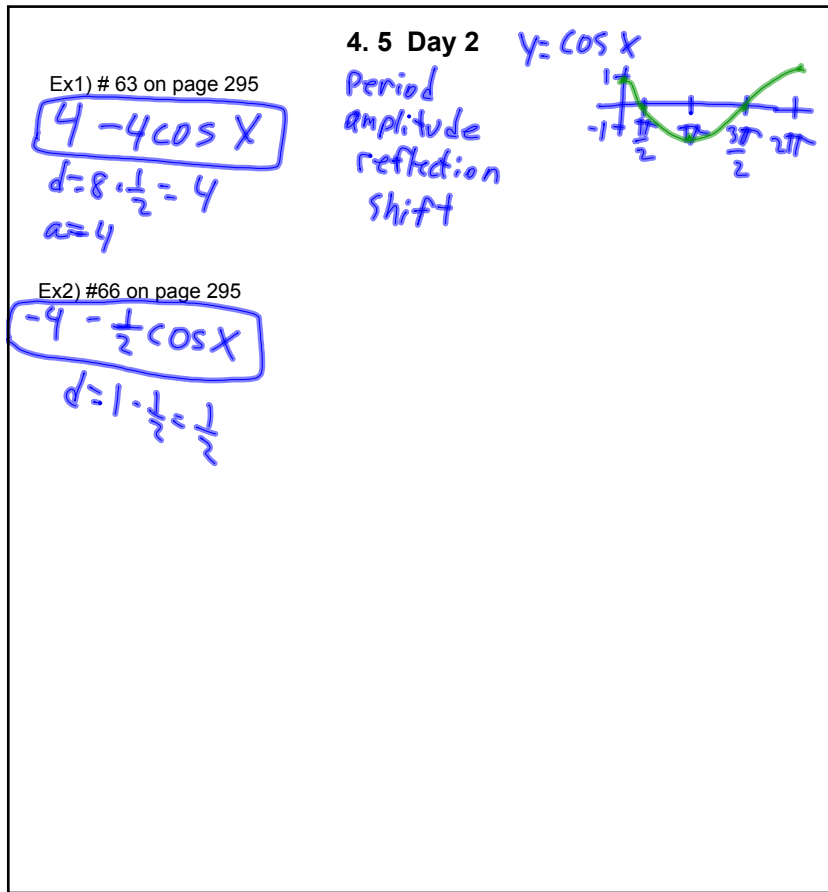 4. 5 Day 2
y= cos x
Ex1) # 63 on page 295
4 -4 cos x
d=8 · 1/2 = 4
a=4
Period
amplitude
reflection
shift
1
-1
π/2
π
3π/2
2π
Ex2) #66 on page 295
-4 - 1/2 cos x
d=1 · 1/2 = 1/2